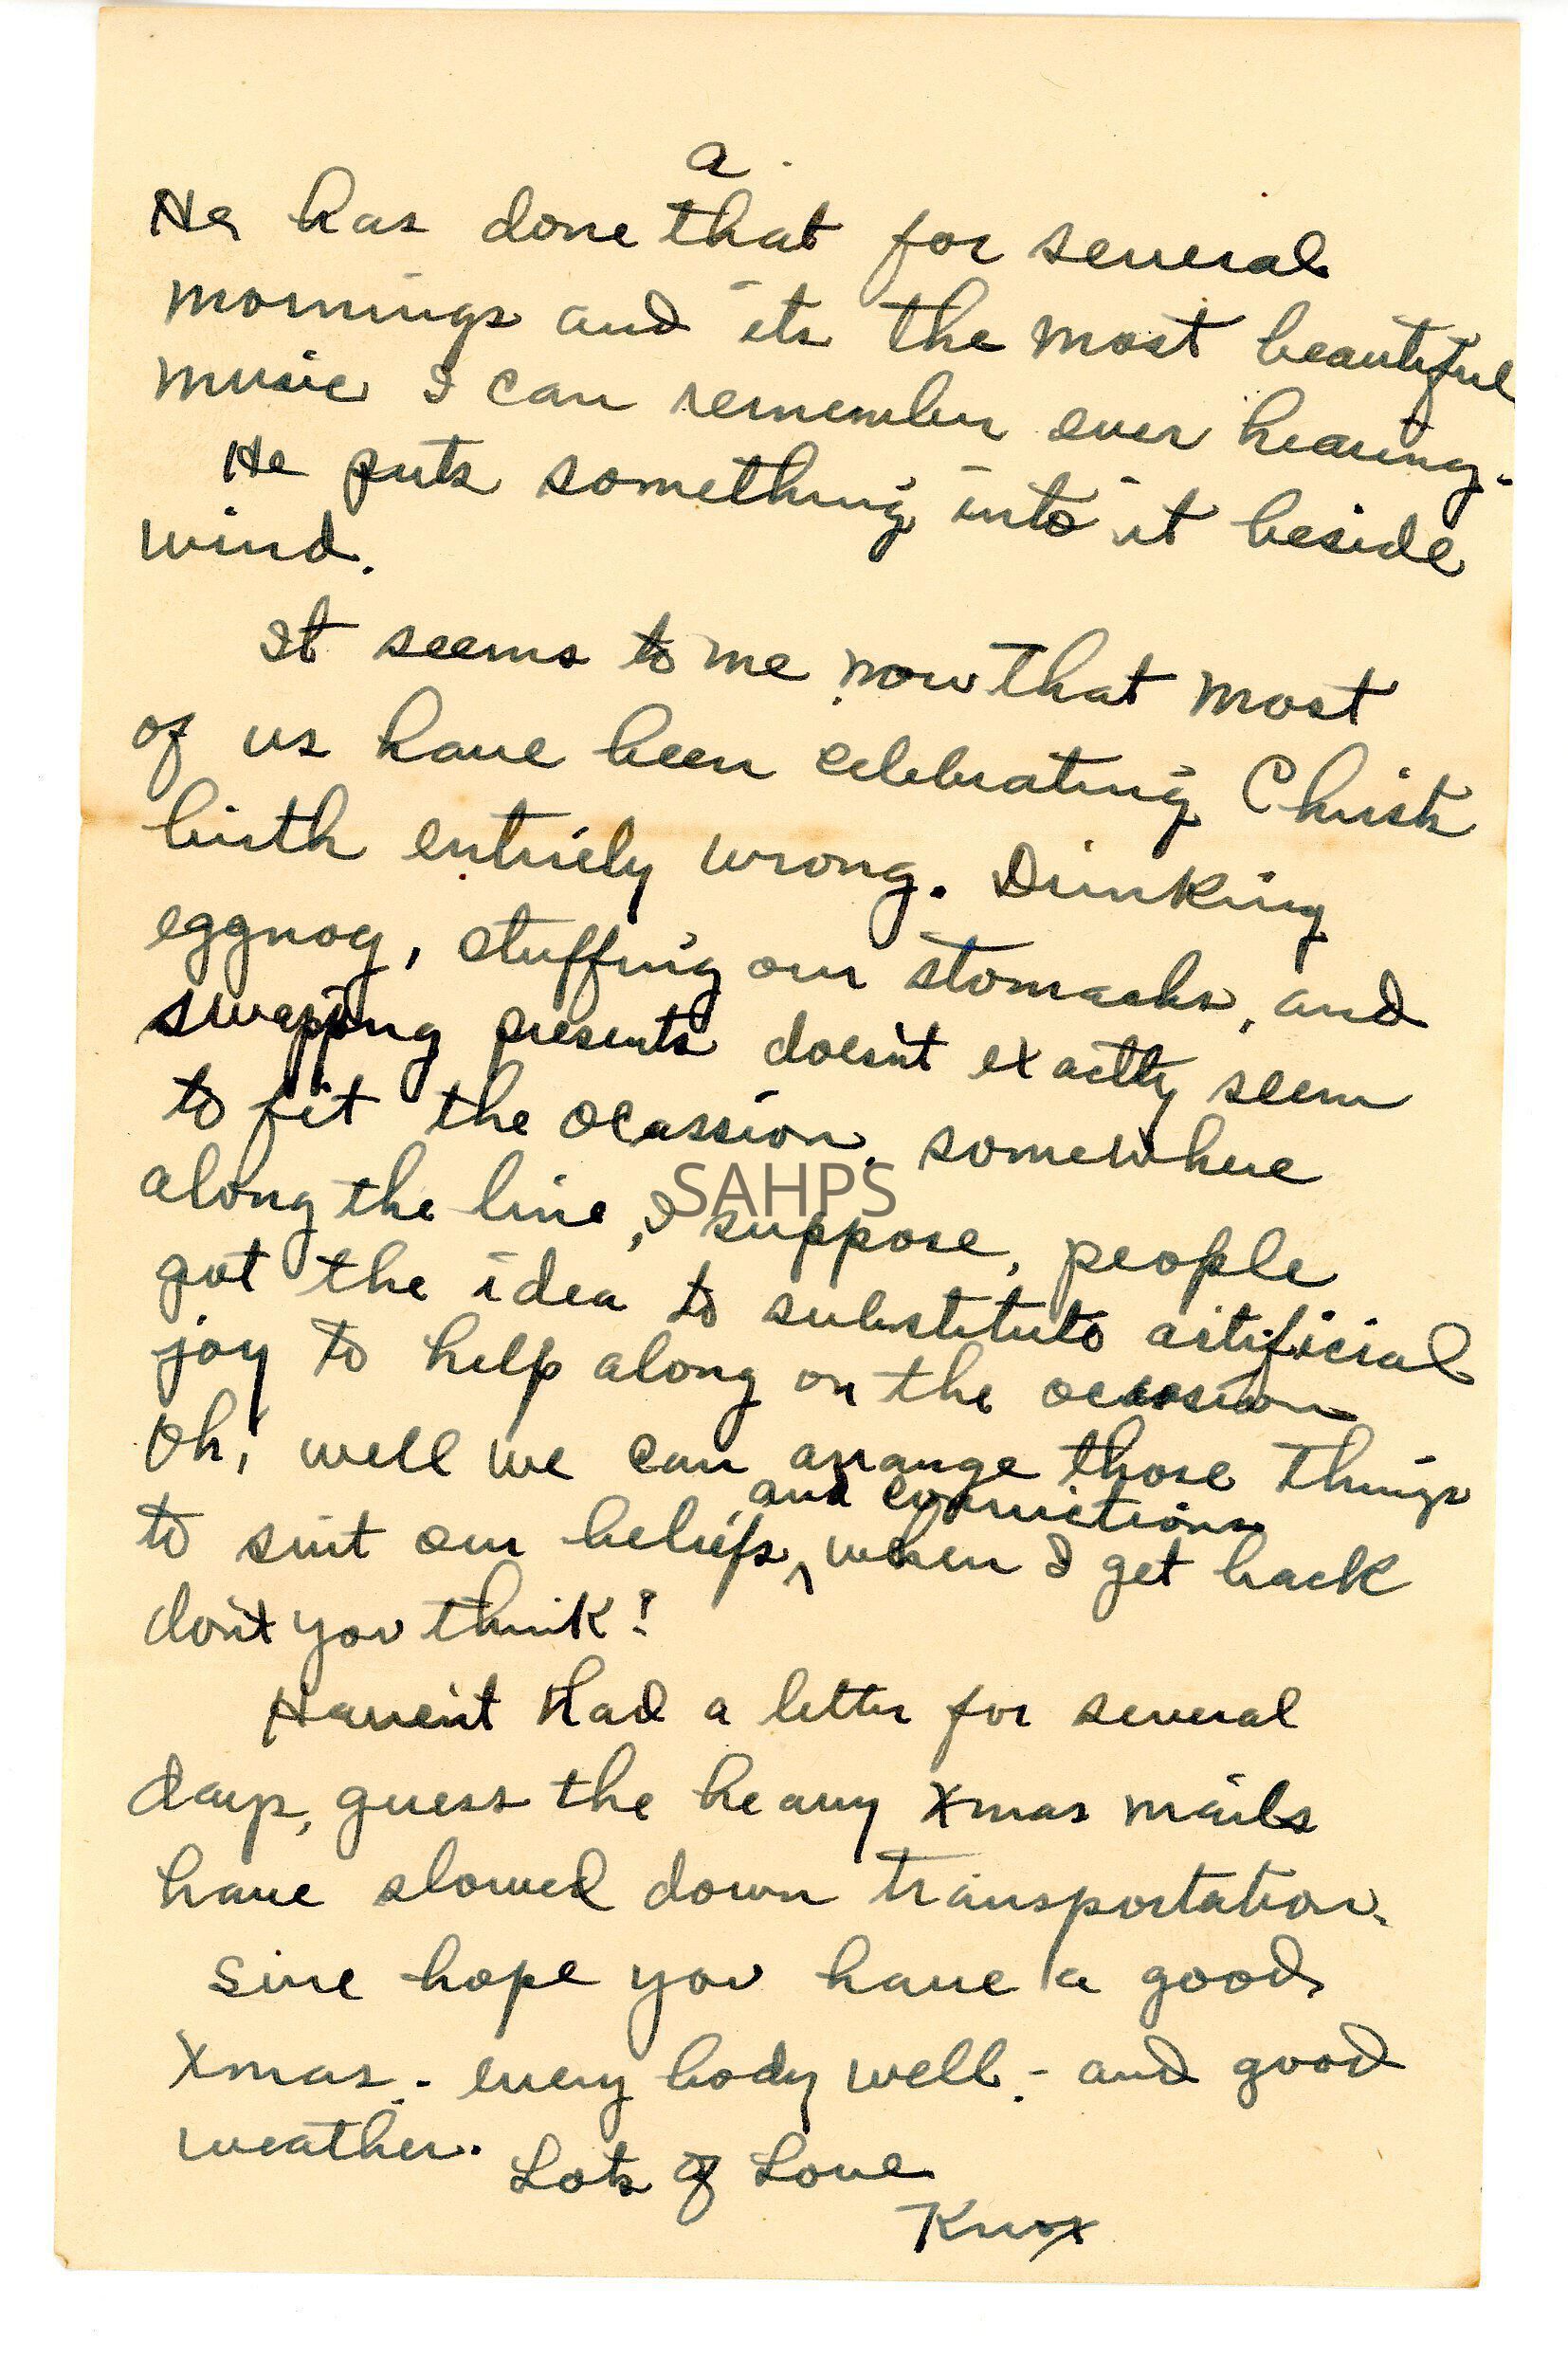 a
He has done that for several
mornings and its the most beautiful
music I can remember ever hearing.
He puts something into it beside
wind.
It seems to me now that most
of us have been celebrating Christs
birth entirely wrong. Drinking
eggnog, stuffing our stomachs, and
swapping presents doesn't exactly seem
to fit the ocassion. somewhere
SAHPS
along the line, I suppose, people
got the idea to substitute artificial
joy to help along on the ocassion
Oh, well we can arrange those things
and convictions
to suit our beliefs, when I get back
don't you think!
Haven't had a letter for several
days, guess the heavy Xmas mails
have slowed down transportation.
Sure hope you have a good
Xmas. - every body well. - and good
weather.
Lots of Love
Knox